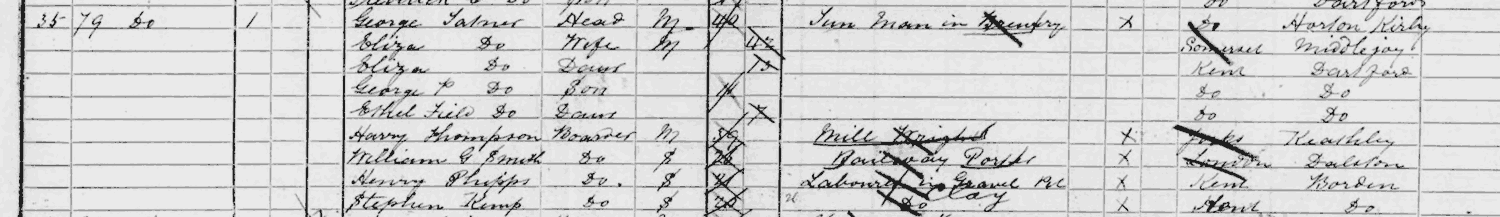 Do Dartford
35 79 Do 1 George Tatner Head M 40 Tun Man in Brewery X Do Horton Kirby
Eliza Do Wife M 42 Somerset Middlezoy
Eliza Do Daur 13 Kent Dartford
George P Do Son 11 Do Do
Ethel Field Do Daur 7 Do Do
Harry Thompson Boarder M 59 Mill Wright X Yorks Keathley
William G Smith Do S Railway Porter X London Dalston
Henry Phipps Do. S Labourer in Gravel Pit X Kent Borden
Stephen Kemp Do S Do Clay X Kent Do